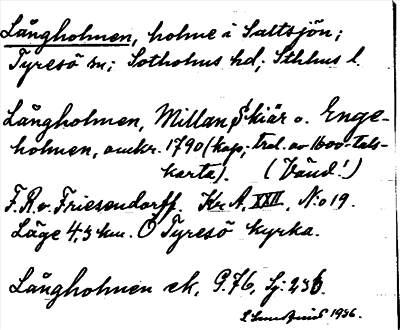 Långholmen, holme i Saltsjön;
Tyresö sn; Sotholms hd; Sthlms l.
Långholmen, Millan Skiär o. Enge-
holmen, omkr. 1790 (kop. trol. av 1600-tals-
karta). (Vänd!)
F.R.v. Friesendorff. Kr. A. XXII, N:o 19.
Läge 4,3 km. O Tyresö kyrka.
Långholmen ek. G.76, Sj: 236.
1936.